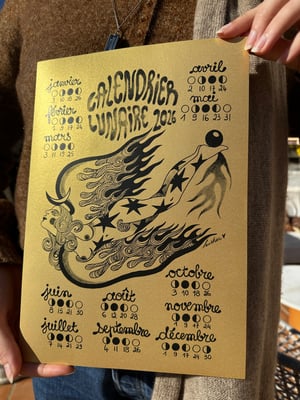 CALENDRIER
LUNAIRE 2026
janvier
3 10 18 26
février
1 9 17 24
mars
3 11 19 25
avril
2 10 17 24
mai
1 9 16 23 31
juin
8 15 21 30
juillet
7 14 21 29
août
6 12 20 28
septembre
4 11 18 26
octobre
3 10 18 26
novembre
1 9 17 24
décembre
1 9 17 24 30